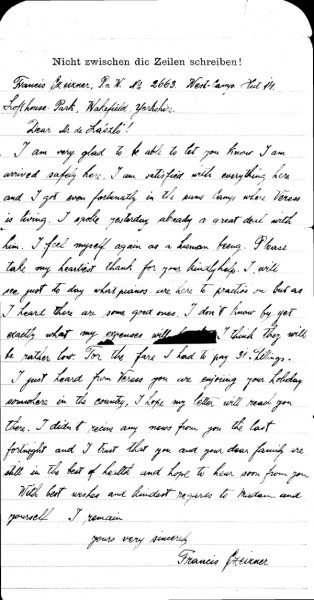 Nicht zwischen die Zeilen schreiben!
Francis Czeixner, P.o.W. No 2663. West-Camp. Hut
Lofthouse-Park, Wakefield, Yorkshire.
Dear Mr de László!
I am very glad to be able to let you know I am
arrived safely here. I am satisfied with everything here
and I got even fortunatly in the same Camp where Veress
is living. I spoke yesterday already a great deal with
him. I feel myself again as a human being. Please
take my heartiest thank for your kindly help. I will
see just to day what pianos are here to practise on but as
I heard there are some good ones. I don't know by yet
exactly what my expenses will I think they will
be rather low. For the fare I had to pay 31. shillings.
I just heard from Veress you are enjoying your holiday
somewhere in the country, I hope my letter will reach you
there. I didn't receive any news from you the last
fortnight and I trust that you and your dear family are
still in the best of health and hope to hear soon from you
With best wishes and kindest regards to Madam and
yourself I remain
yours very sincerely
Francis Czeixner